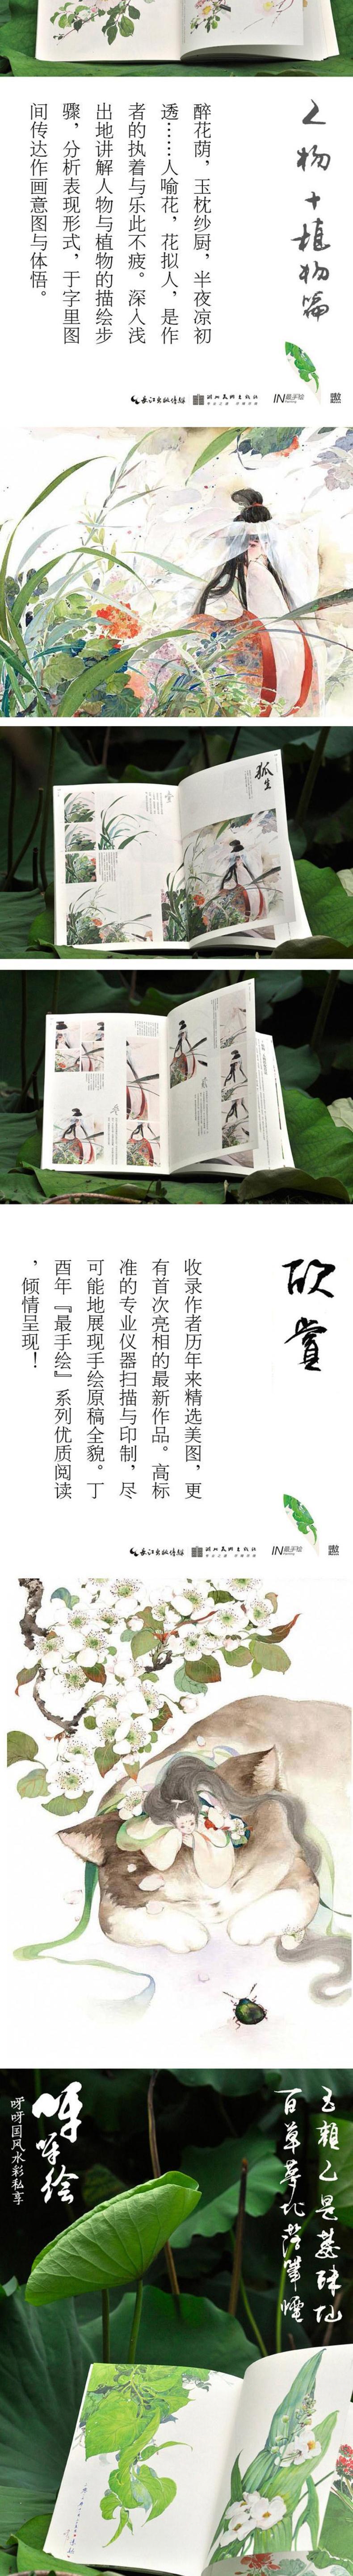 人物+植物篇
醉花荫，玉枕纱厨，半夜凉初
透……人喻花，花拟人，是作
者的执着与乐此不疲。深入浅
出地讲解人物与植物的描绘步
骤，分析表现形式，于字里图
间传达作画意图与体悟。
长江出版传媒
湖北美术出版社
IN最手绘
狐生
欣赏
收录作者历年来精选美图，更
有首次亮相的最新作品。高标
准的专业仪器扫描与印制，尽
可能地展现手绘原稿全貌。丁
酉年『最手绘』系列优质阅读
，倾情呈现！
长江出版传媒
湖北美术出版社
IN最手绘
呀呀绘
呀呀国风水彩私享